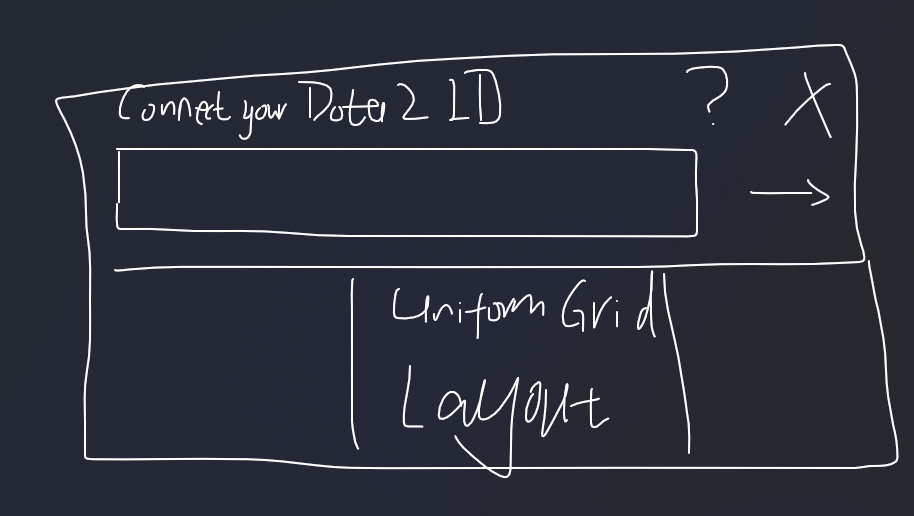 Connect your Dota 2 ID ? X
Uniform Grid
Layout